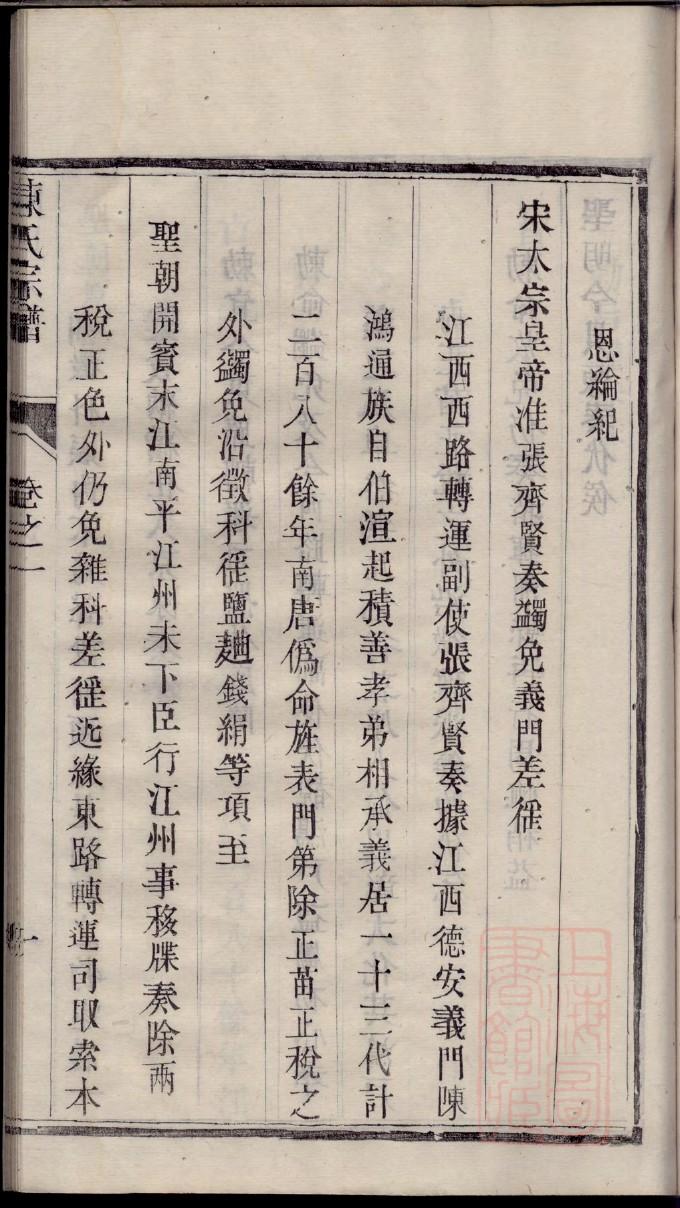 恩綸紀
宋太宗皇帝准張齊賢奏蠲免義門差徭
江西西路轉運副使張齊賢奏據江西德安義門陳
鴻通族自伯渲起積善孝弟相承義居一十三代計
二百八十餘年南唐僞命旌表門第除正苗正稅之
外蠲免沿徵科徭鹽麯錢絹等項至
聖朝開寶末江南平江州未下臣行江州事移牒奏除兩
稅正色外仍免雜科差徭近緣東路轉運司取索本
陳氏宗譜
卷之一
一
上海圖書館藏